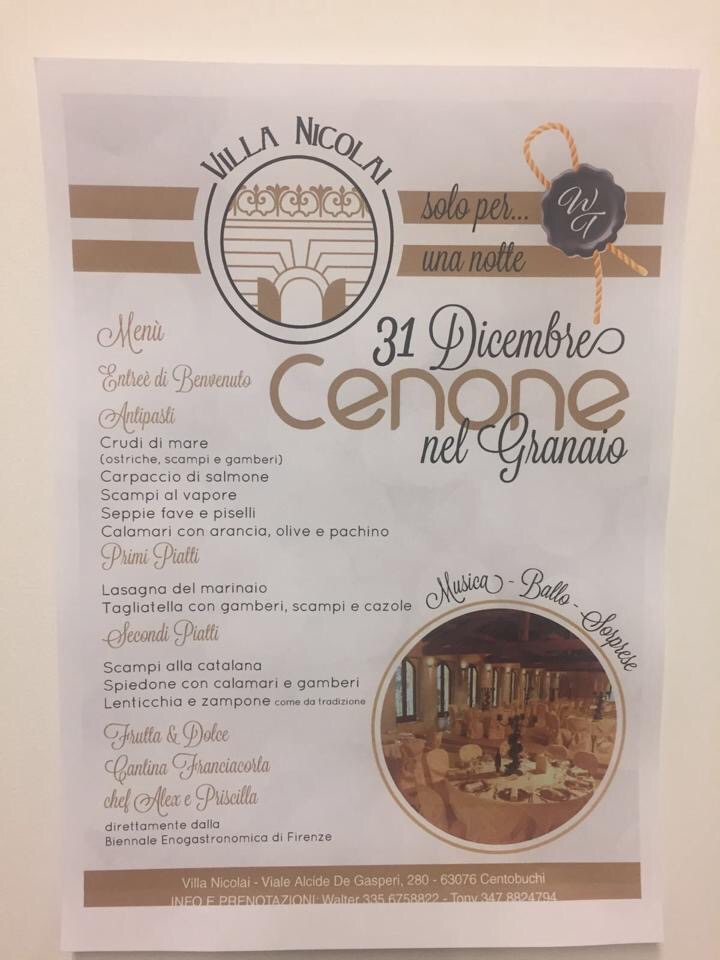 VILLA NICOLAI
solo per...
una notte
WT
31 Dicembre
Cenone
nel Granaio
Menù
Entreè di Benvenuto
Antipasti
Crudi di mare
(ostriche, scampi e gamberi)
Carpaccio di salmone
Scampi al vapore
Seppie fave e piselli
Calamari con arancia, olive e pachino
Primi Piatti
Lasagna del marinaio
Tagliatella con gamberi, scampi e cazole
Secondi Piatti
Scampi alla catalana
Spiedone con calamari e gamberi
Lenticchia e zampone come da tradizione
Frutta & Dolce
Cantina Franciacorta
chef Alex e Priscilla
direttamente dalla
Biennale Enogastronomica di Firenze
Musica - Ballo - Sorprese
Villa Nicolai - Viale Alcide De Gasperi, 280 - 63076 Centobuchi
INFO E PRENOTAZIONI: Walter 335.6758822 - Tony 347.8824794